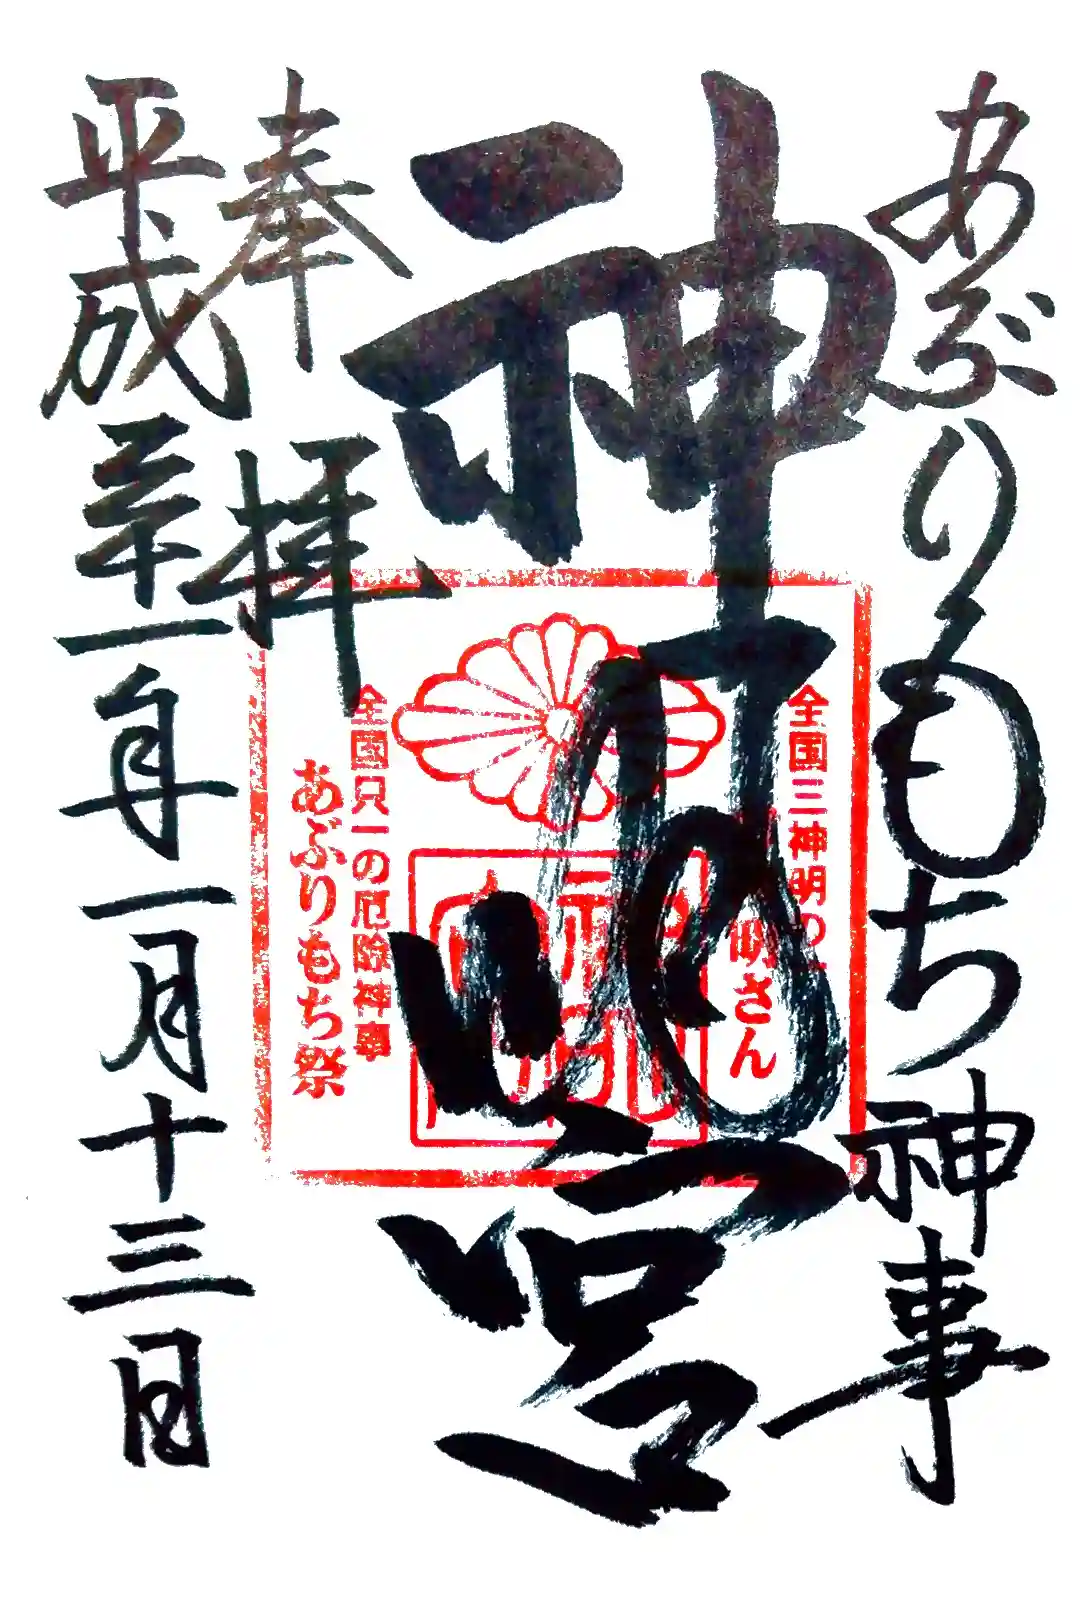 あぶりもち神事
神明宮
奉拝
平成三十一年一月十三日
全国三神明の
明さん
神明宮
全国只一の厄除神事
あぶりもち祭